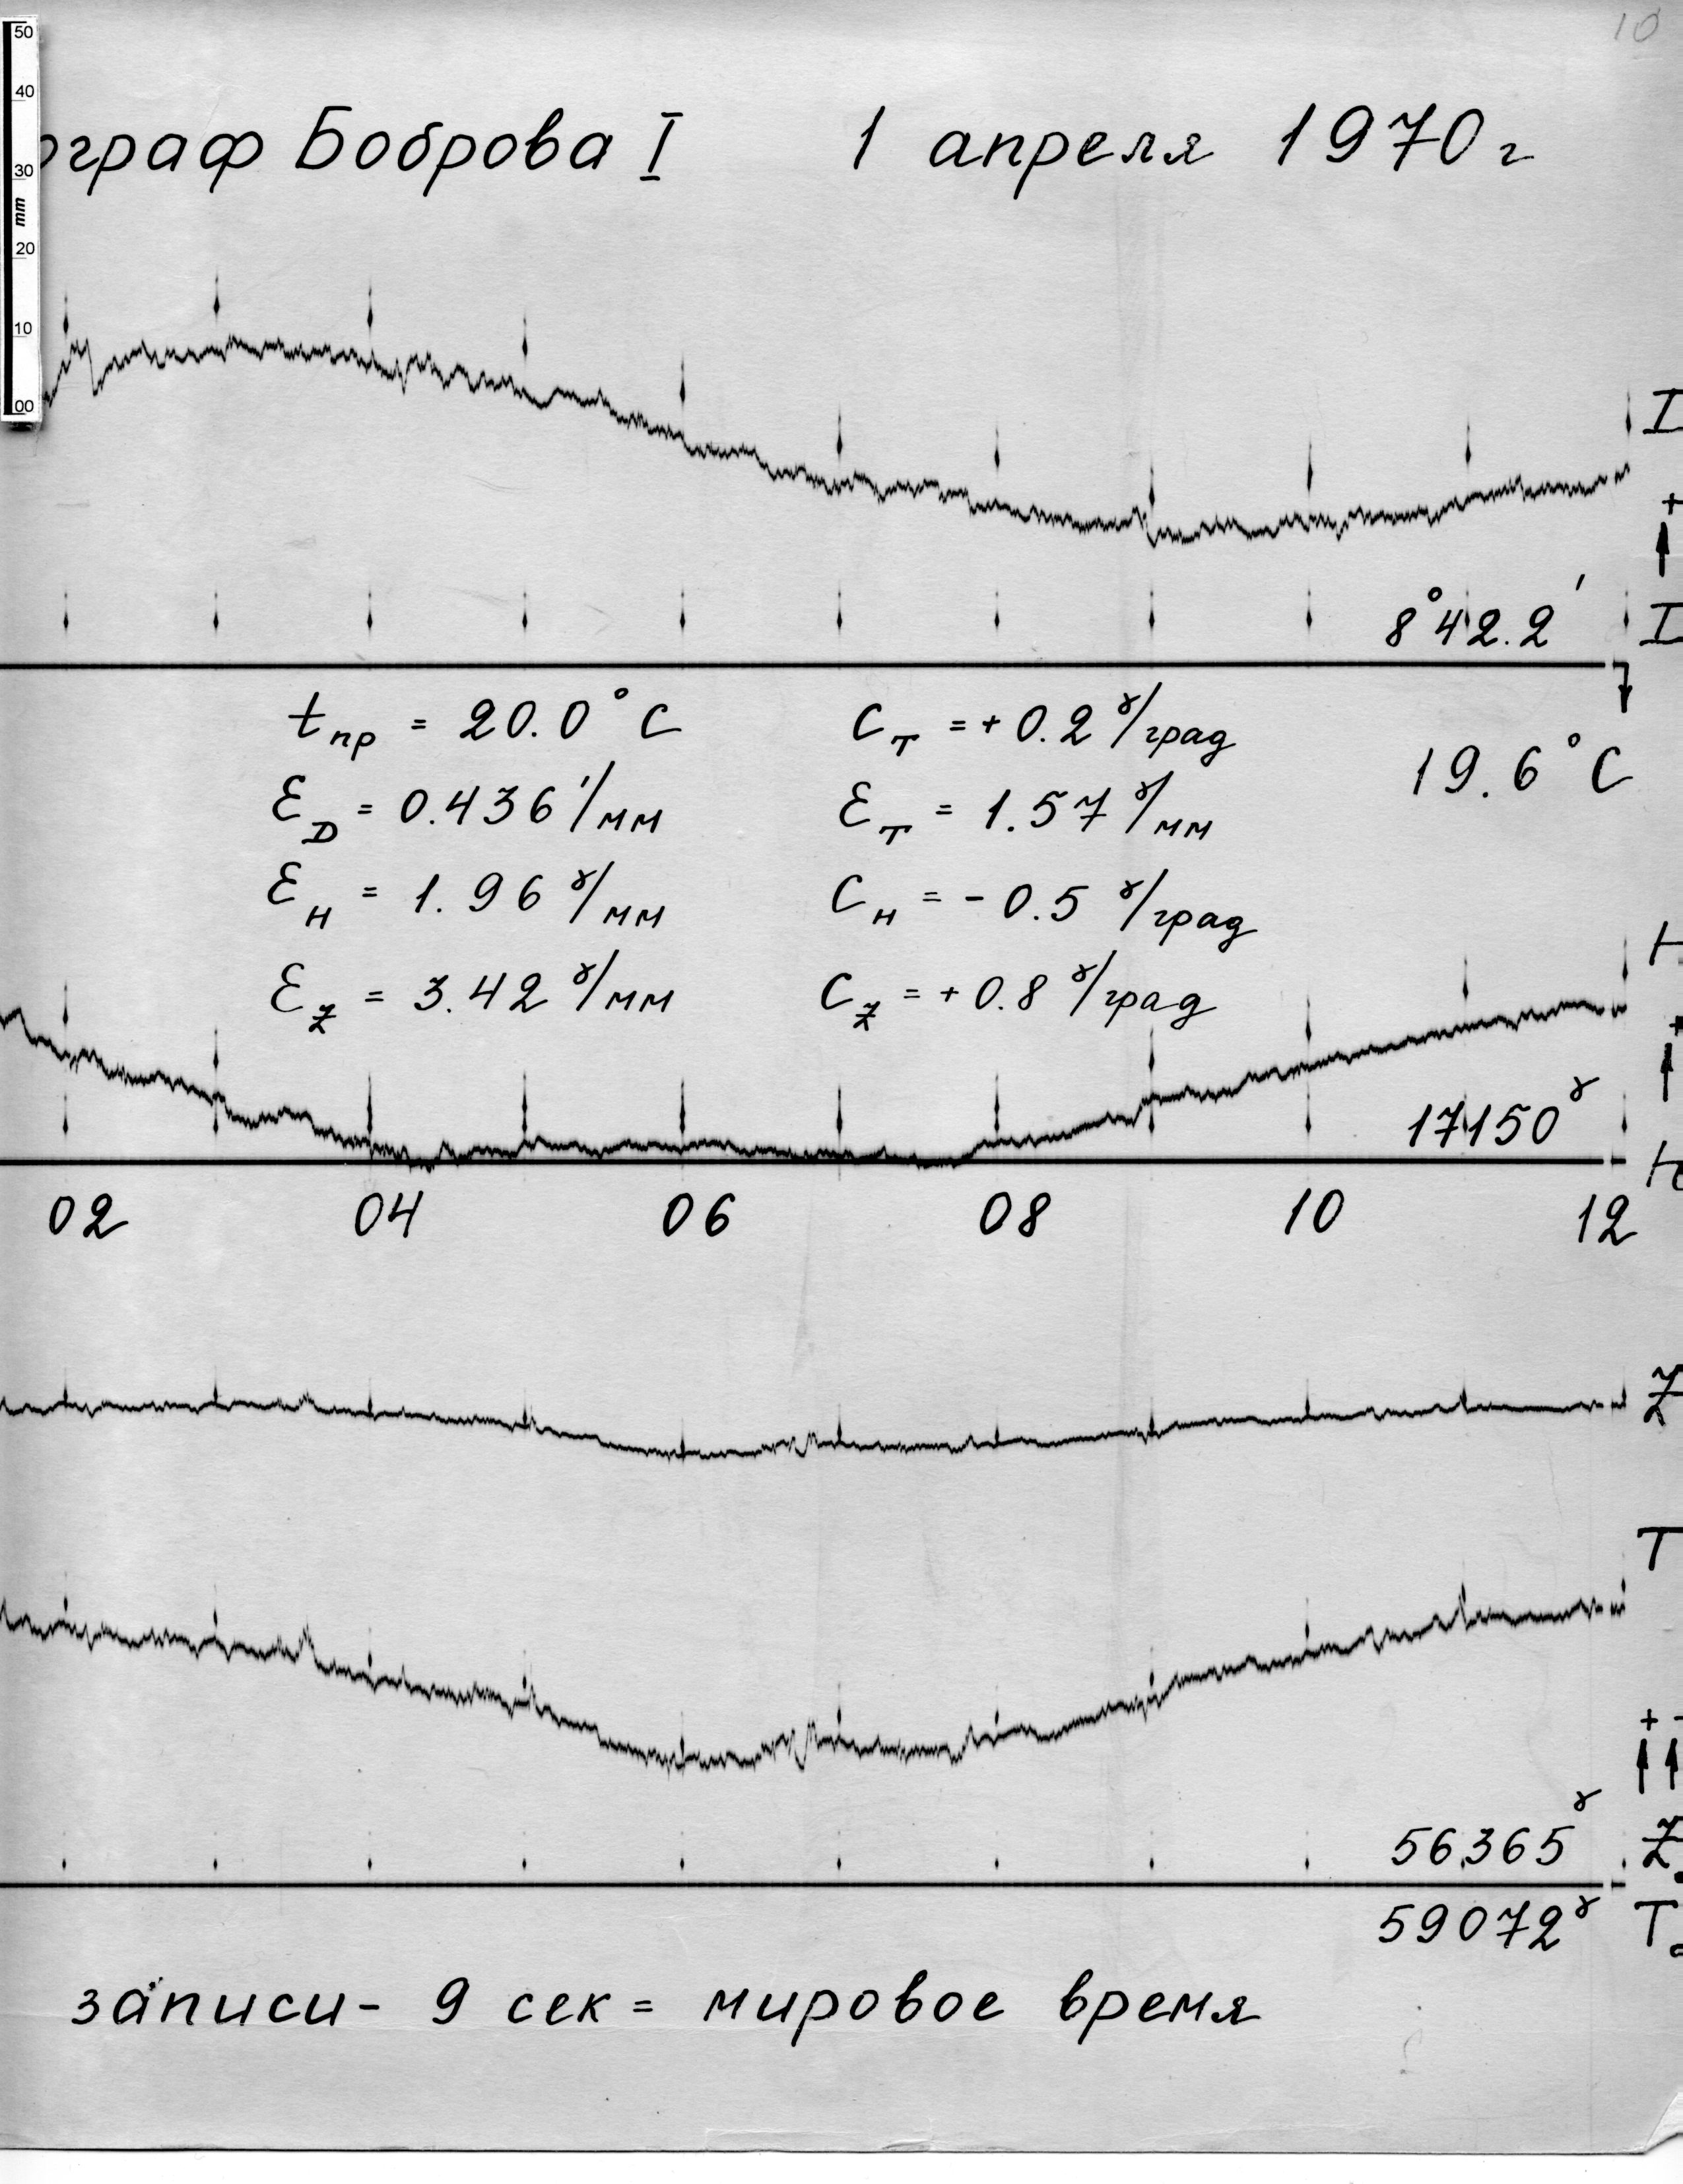 10
50
40
30
mm
20
10
00
ограф Боброва I 1 апреля 1970 г
+
8°42.2'
tпр = 20.0°C Cт = + 0.2 γ/град
19.6°C
ƐD = 0.436'/мм Ɛт = 1.57 γ/мм
ƐH = 1.96 γ/мм Cн = - 0.5 γ/град
ƐZ = 3.42 γ/мм CZ = + 0.8 γ/град
+
17150γ
02 04 06 08 10 12
Z
T
+ -
56365γ Z
59072γ T
записи - 9 сек = мировое время